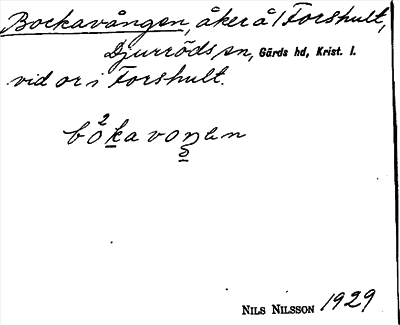 Bockavången, åker å 1 Forshult,
Djurröds sn, Gärds hd, Krist. l.
vid or i Forshult.
bo²kavoŋen
NILS NILSSON 1929